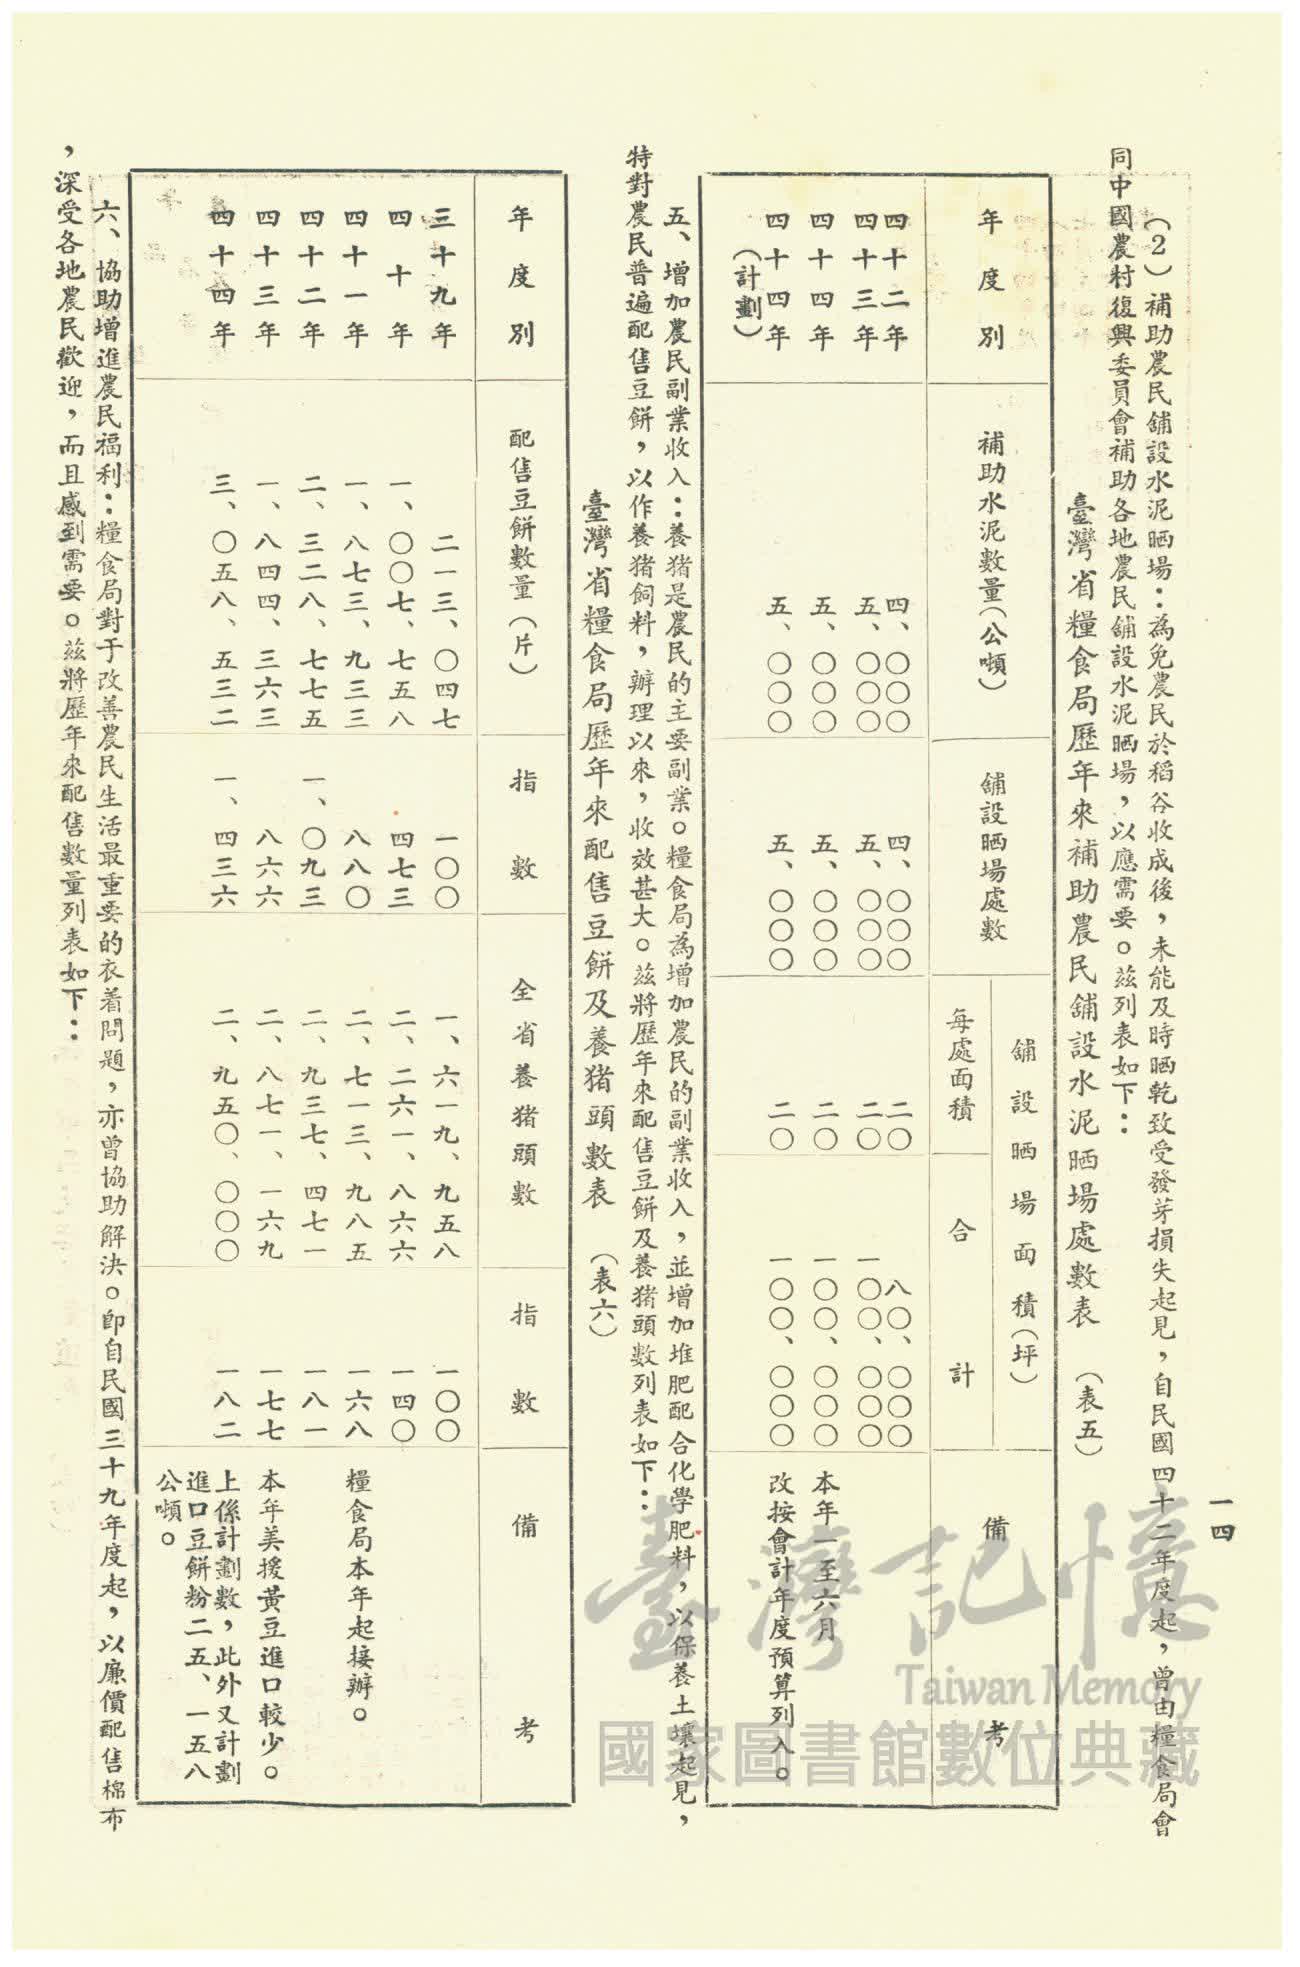 一四
（2）補助農民舖設水泥晒場：為免農民於稻谷收成後，未能及時晒乾致受發芽損失起見，自民國四十二年度起，曾由糧食局會
同中國農村復興委員會補助各地農民舖設水泥晒場，以應需要。茲列表如下：
臺灣省糧食局歷年來補助農民舖設水泥晒場處數表　（表五）
年度別　補助水泥數量（公噸）　舖設晒場處數　舖設晒場面積（坪）　每處面積　合計　備考
四十二年　四、〇〇〇　四、〇〇〇　二〇　八〇、〇〇〇
四十三年　五、〇〇〇　五、〇〇〇　二〇　一〇〇、〇〇〇
四十四年　五、〇〇〇　五、〇〇〇　二〇　一〇〇、〇〇〇　本年一至六月
四十四年（計劃）　五、〇〇〇　五、〇〇〇　二〇　一〇〇、〇〇〇　改按會計年度預算列入。
五、增加農民副業收入：養猪是農民的主要副業。糧食局為增加農民的副業收入，並增加堆肥配合化學肥料，以保養土壤起見，
特對農民普遍配售豆餅，以作養猪飼料，辦理以來，收效甚大。茲將歷年來配售豆餅及養猪頭數列表如下：
臺灣省糧食局歷年來配售豆餅及養猪頭數表　（表六）
年度別　配售豆餅數量（片）　指數　全省養猪頭數　指數　備考
三十九年　二一三、〇四七　一〇〇　一、六一九、九五八　一〇〇
四十年　一、〇〇七、七五八　四七三　二、二六一、八六六　一四〇
四十一年　一、八七三、九三三　八八〇　二、七一三、九八五　一六八　糧食局本年起接辦。
四十二年　二、三二八、七七五　一、〇九三　二、九三七、四七一　一八一
四十三年　一、八四四、三六三　八六六　二、八七一、一六九　一七七　本年美援黃豆進口較少。
四十四年　三、〇五八、五三二　一、四三六　二、九五〇、〇〇〇　一八二　上係計劃數，此外又計劃
進口豆餅粉二五、一五八
公噸。
六、協助增進農民福利：糧食局對于改善農民生活最重要的衣着問題，亦曾協助解決。即自民國三十九年度起，以廉價配售棉布
，深受各地農民歡迎，而且感到需要。茲將歷年來配售數量列表如下：
臺灣記憶
Taiwan Memory
國家圖書館數位典藏